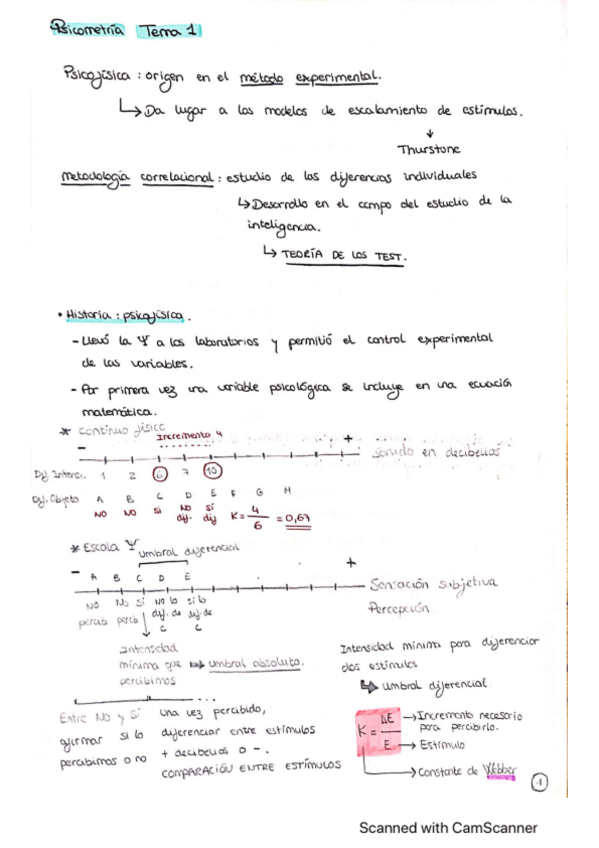 Psicometría Tema 1
Psicofísica : origen en el método experimental.
↳ Da lugar a los modelos de escalamiento de estímulos.
↓
Thurstone
Metodología correlacional : estudio de las diferencias individuales
↳ Desarrollo en el campo del estudio de la
inteligencia.
↳ TEORÍA DE LOS TEST.
• Historia : psicofísica.
- Llevó la Ψ a los laboratorios y permitió el control experimental
de las variables.
- Por primera vez una variable psicológica se incluye en una ecuación
matemática.
* Continuo físico
Incremento 4
- + sonido en decibelios
Dif. Intensi. 1 2 6 7 10
Dif. Objeto A B C D E F G H
NO NO Si NO dif. Si dif K = 4/6 = 0,67
* Escala Ψ
umbral diferencial
- A B C D E +
Sensación subjetiva
Percepción.
NO percib No percb Si No lo dif. de C si lo dif. de C
intensidad
mínima que → umbral absoluto.
percibimos
Intensidad mínima para diferenciar
dos estímulos
↳ umbral diferencial
Entre No y Sí
afirmar si lo
percibimos o no
una vez percibido,
diferenciar entre estímulos
+ decibelios o -.
COMPARACIÓN ENTRE ESTÍMULOS
K = ΔE / E
→ Incremento necesario
para percibirlo.
→ Estímulo
→ Constante de Webber
1
Scanned with CamScanner